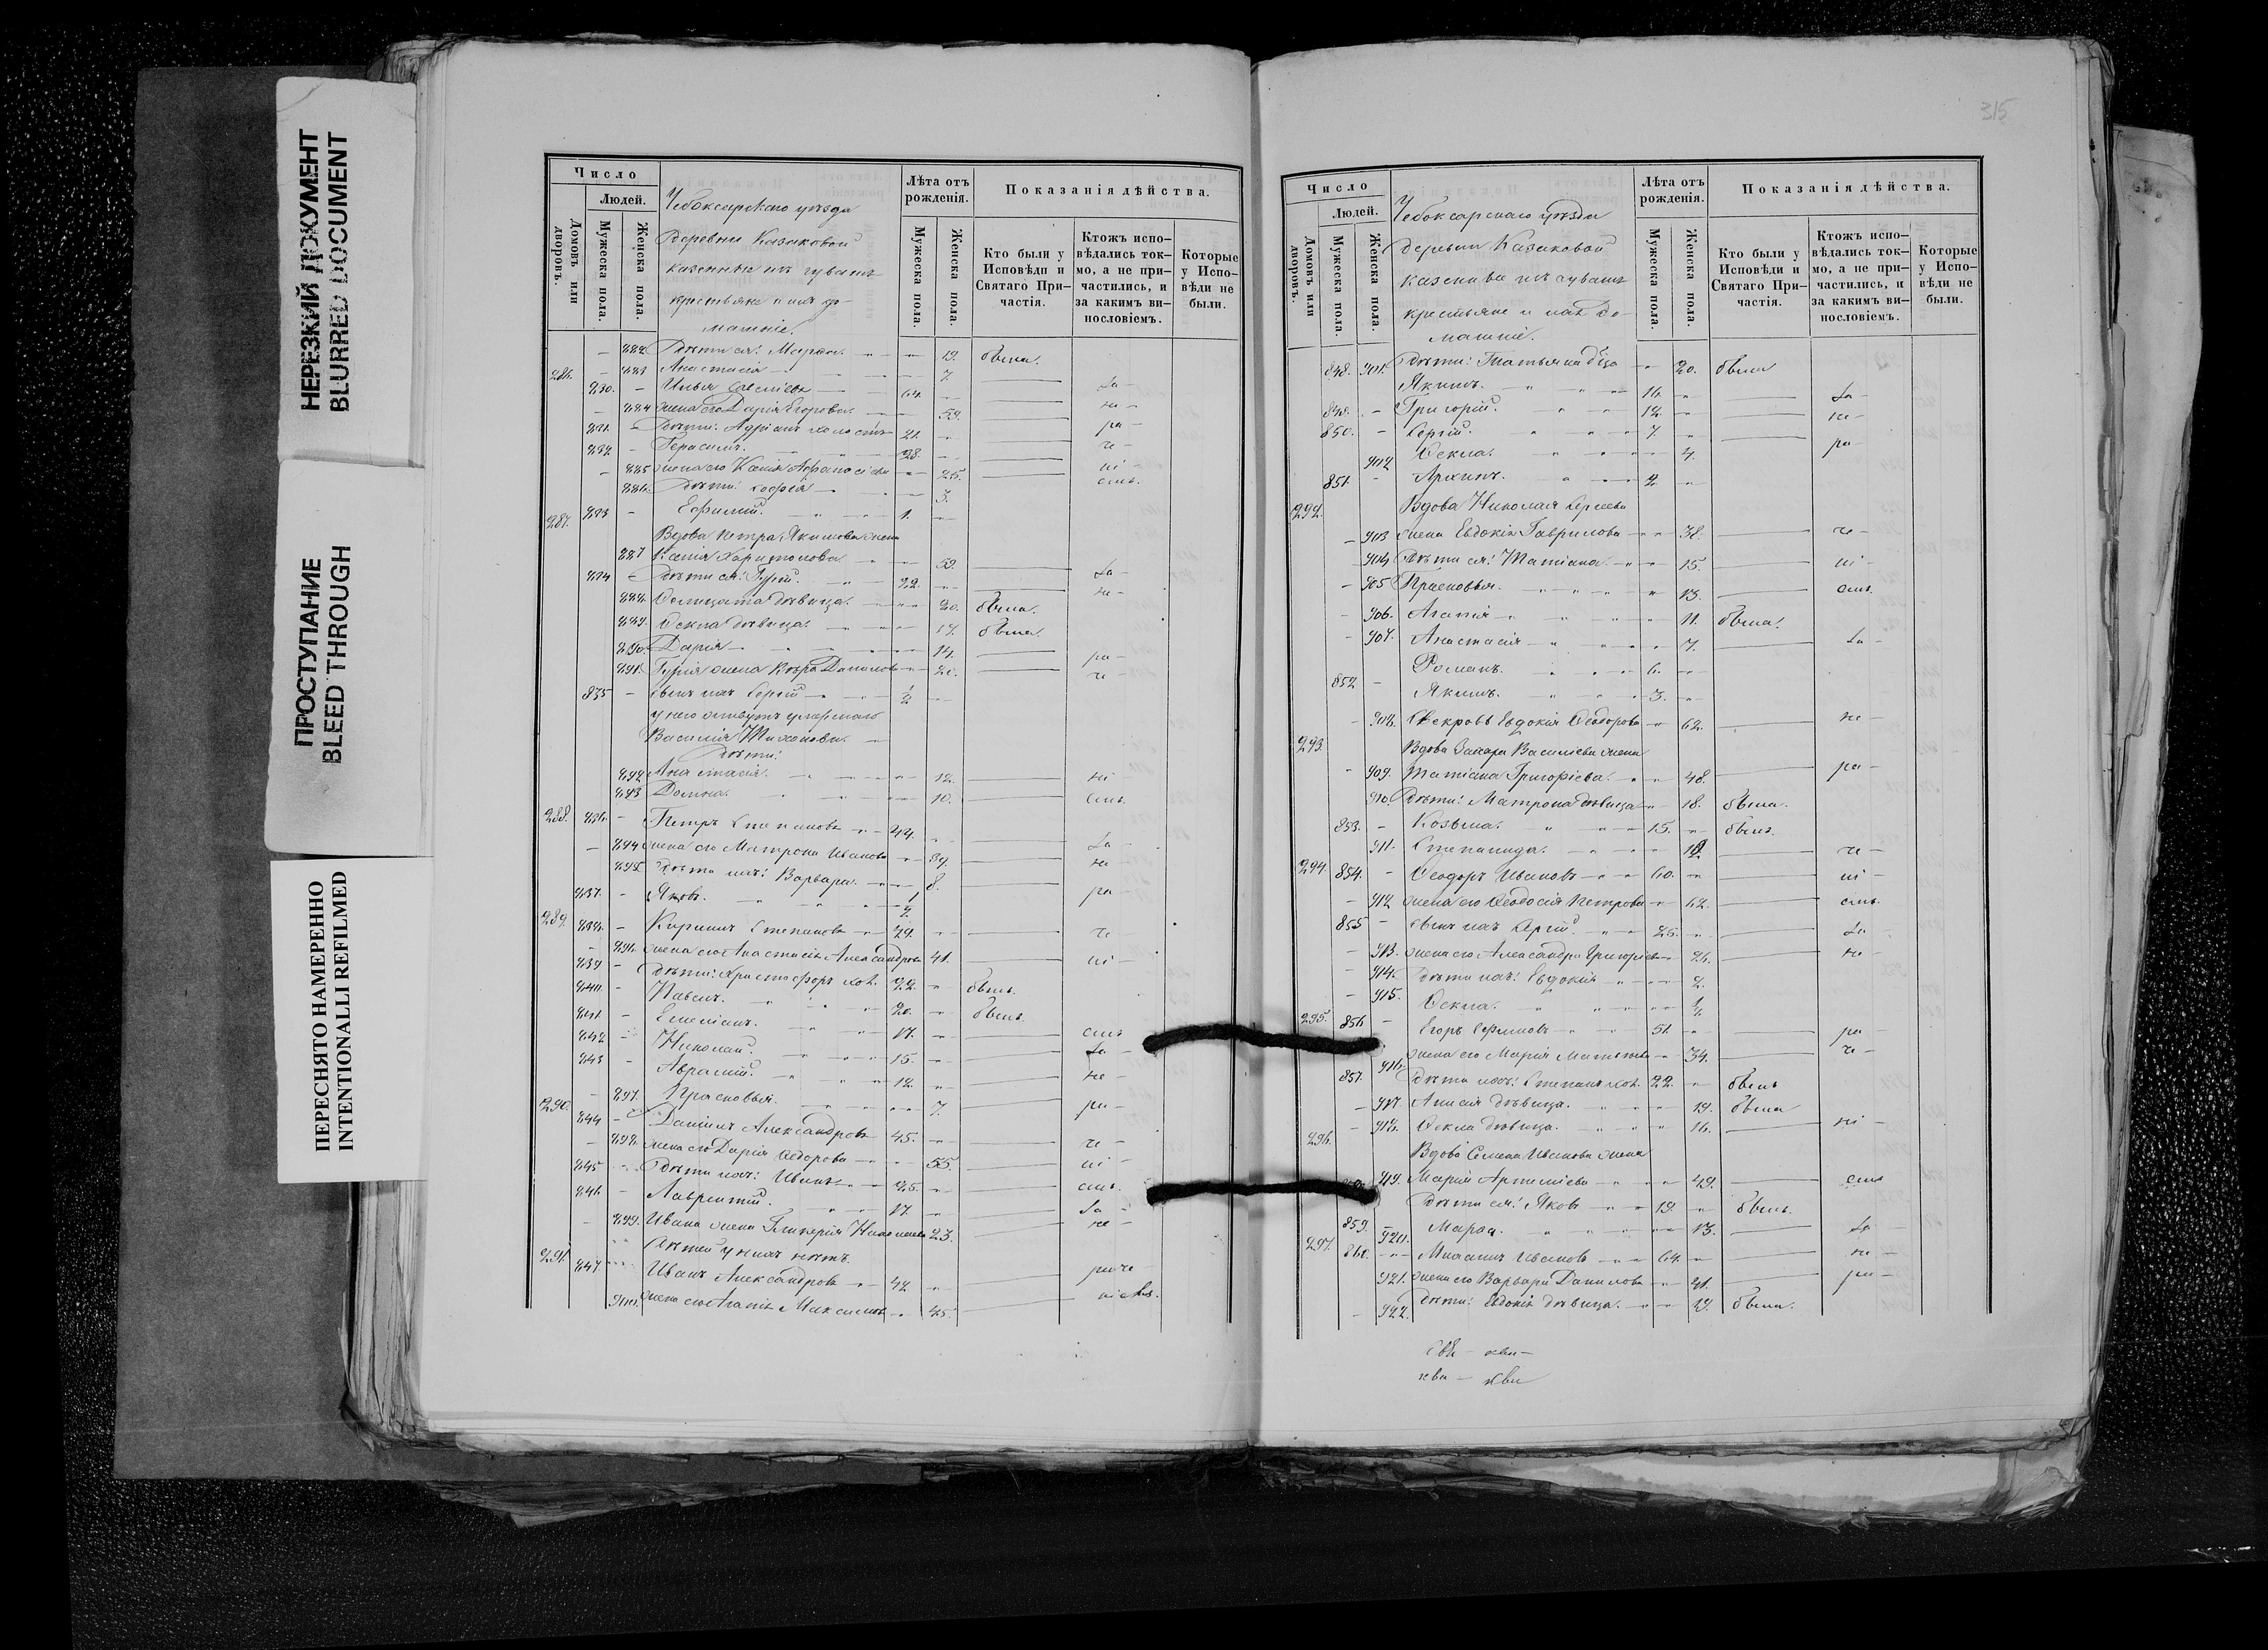 НЕРЕЗКИЙ ДОКУМЕНТ
BLURRED DOCUMENT
ПРОСТУПАНИЕ
BLEED THROUGH
ПЕРЕСНЯТО НАМЕРЕННО
INTENTIONALLI REFILMED
Число
Людей.
Домовъ или дворовъ.
Мужеска пола.
Женска пола.
Чебоксарскаго уѣзда
деревни Казаковой
казенные изъ чувашъ
крестьяне и ихъ до-
машніе.
Лѣта отъ рожденія.
Мужеска пола.
Женска пола.
Показанія дѣйства.
Кто были у Исповѣди и Святаго При-частія.
Ктожъ испо-вѣдались ток-мо, а не при-частились, и за какимъ ви-нословіемъ.
Которые у Испо-вѣди не были.
882 Дѣти ея: Марѳа 19. была.
286. 883 Анастасія 7.
830. Илья 64. за
884 жена его Дарія Егорова 59. не
831. Дѣти: Адріанъ холостъ 21. ра
832. Герасимъ. 28. че
885 жена его Ксенія 25. ні
886. Дѣти: Софія 3. емъ.
287. 833 Ефимій. 1.
Вдова Петра Якимова жена
887 Ксенія Харитонова 59. за
834 Дѣти ея: Гурій. 22. не
888. дѣвица. 20. была.
889. Ѳекла дѣвица. 17. была.
890. Дарія 14. ра
891. Гурія жена Вѣра Данилова 20. че
835 сынъ ихъ Сергій 1/2
у него живутъ умершаго
Василія Тихонова
Дѣти:
892 Анастасія. 12. ні
893 Домна. 10. емъ.
288. 836. Петръ Степановъ 44. за
894 жена его Матрона Иванова 39. не
895 Дѣти ихъ: Варвара. 8.
837. Яковъ. ра
289. 838. Кириллъ Степановъ че
896. жена его Анастасія Александрова 41. ні
839 Дѣти: Христофоръ хол. 22. былъ.
840 Павелъ. 20. былъ
841 Емеліанъ. 17. емъ
842 Николай. 15. за
843 Аврамій. 12. не
897. Прасковья. 7. ра
290. 844 Даніилъ Александровъ 45. че
898. жена его Дарія Ѳедорова 55. ні
845 Дѣти ихъ: Иванъ 25. емъ.
846. Лаврентій. 17. за
899. Ивана жена Гликерія Николаева 23. не
Дѣтей у нихъ нѣтъ.
291. 847 Иванъ Александровъ 42 раче
900. жена его Агапія Максимова 45. ніемъ.
315
Число
Людей.
Домовъ или дворовъ.
Мужеска пола.
Женска пола.
Чебоксарскаго уѣзда
деревни Казаковой
казенные изъ чувашъ
крестьяне и ихъ до-
машніе.
Лѣта отъ рожденія.
Мужеска пола.
Женска пола.
Показанія дѣйства.
Кто были у Исповѣди и Святаго При-частія.
Ктожъ испо-вѣдались ток-мо, а не при-частились, и за какимъ ви-нословіемъ.
Которые у Испо-вѣди не были.
848. 901. Дѣти: Татьяна 20. была
Якимъ. 16. за
849. Григорій. 12. не
850. Сергій. 7. ра
902 Ѳекла. 4.
851. Архипъ. 2.
292. Вдова Николая Сергѣева
903 жена Евдокія Гаврилова 38. че
904 Дѣти ея: Татіана. 15. ні
905 Прасковья. 13. емъ.
906. Агапія 11. была.
907. Анастасія 7. за
Романъ. 6.
852 Якимъ. 3.
908. Свекровь Евдокія Ѳеодорова 62. не
293. Вдова Захара Василіева жена
909. Татіана Григорьева. 48. ра
910. Дѣти: Матрона дѣвица 18. была.
853. Козьма. 15. былъ.
911. Степанида. че
294. 854. Ѳеодоръ Ивановъ 60. ні
912 жена его Ѳеодосія Петрова 62. емъ.
855 сынъ ихъ Сергій. 25. за
913. жена его Александра Григорьева 26. не
914. Дѣти ихъ: Евдокія 2.
915. Ѳекла.
295. 856 Егоръ 51. ра
916. жена его Марія 34. че
857. Дѣти ихъ: Степанъ хол. 22. былъ
917. Анисія дѣвица. 19. была
918. Ѳекла дѣвица. 16. ні
296. Вдова Семена Иванова жена
919. Марія Артеміева 49. емъ
Дѣти ея: Яковъ 19. былъ.
859. 920. Марѳа. 13. за
297. 860. Михаилъ Ивановъ 64. не
921. жена его Варвара Данилова 41. ра
922. Дѣти: Евдокія дѣвица. 19. была.